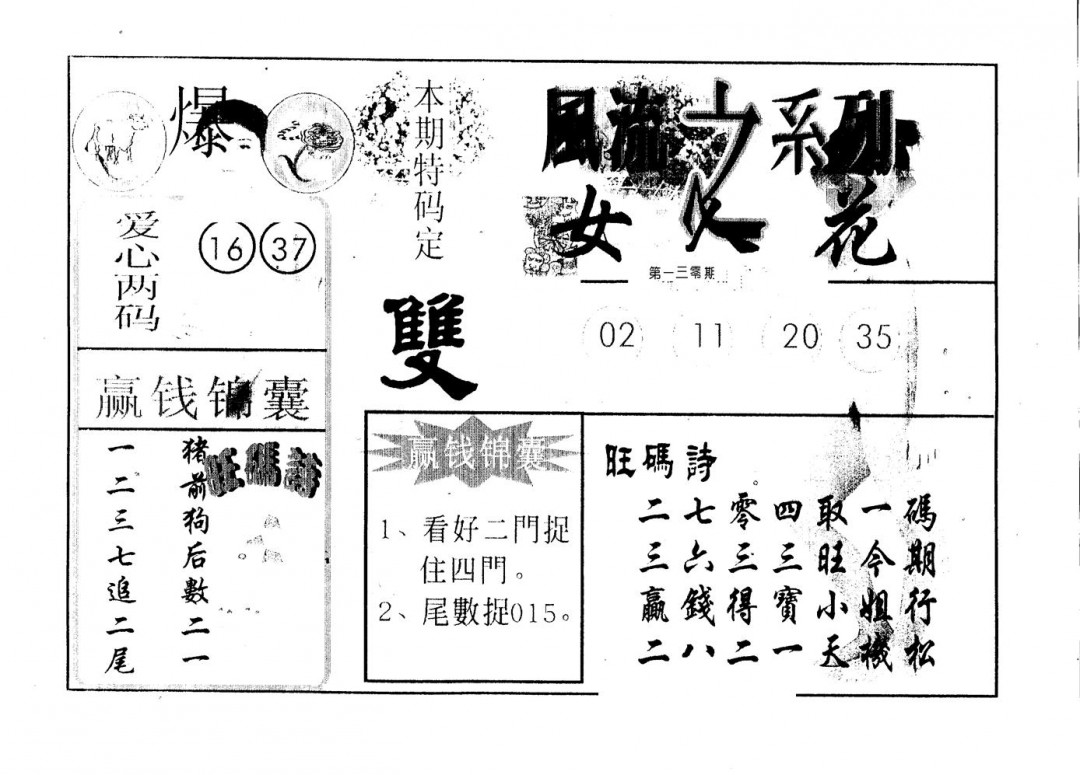 爆
爱心两码
16 37
赢钱锦囊
旺碼詩
猪前狗后數二一
一二三七追二尾
本期特码定
雙
赢钱锦囊
1、看好二門捉
住四門。
2、尾數捉015。
風流之系列
女人花
第一三零期
02 11 20 35
旺碼詩
二七零四取一碼
三六三三旺今期
贏錢得寶小姐行
二八二一天機松